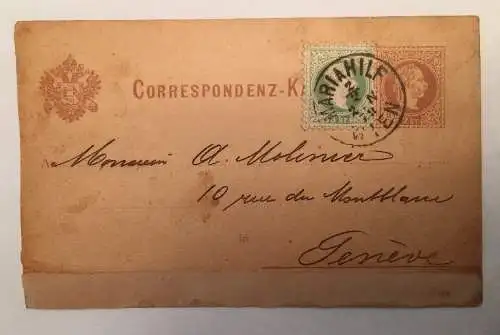 CORRESPONDENZ-KA
MARIAHILF
WIEN
Monsieur A. Molinier
10 rue du Montblanc
in
Genève